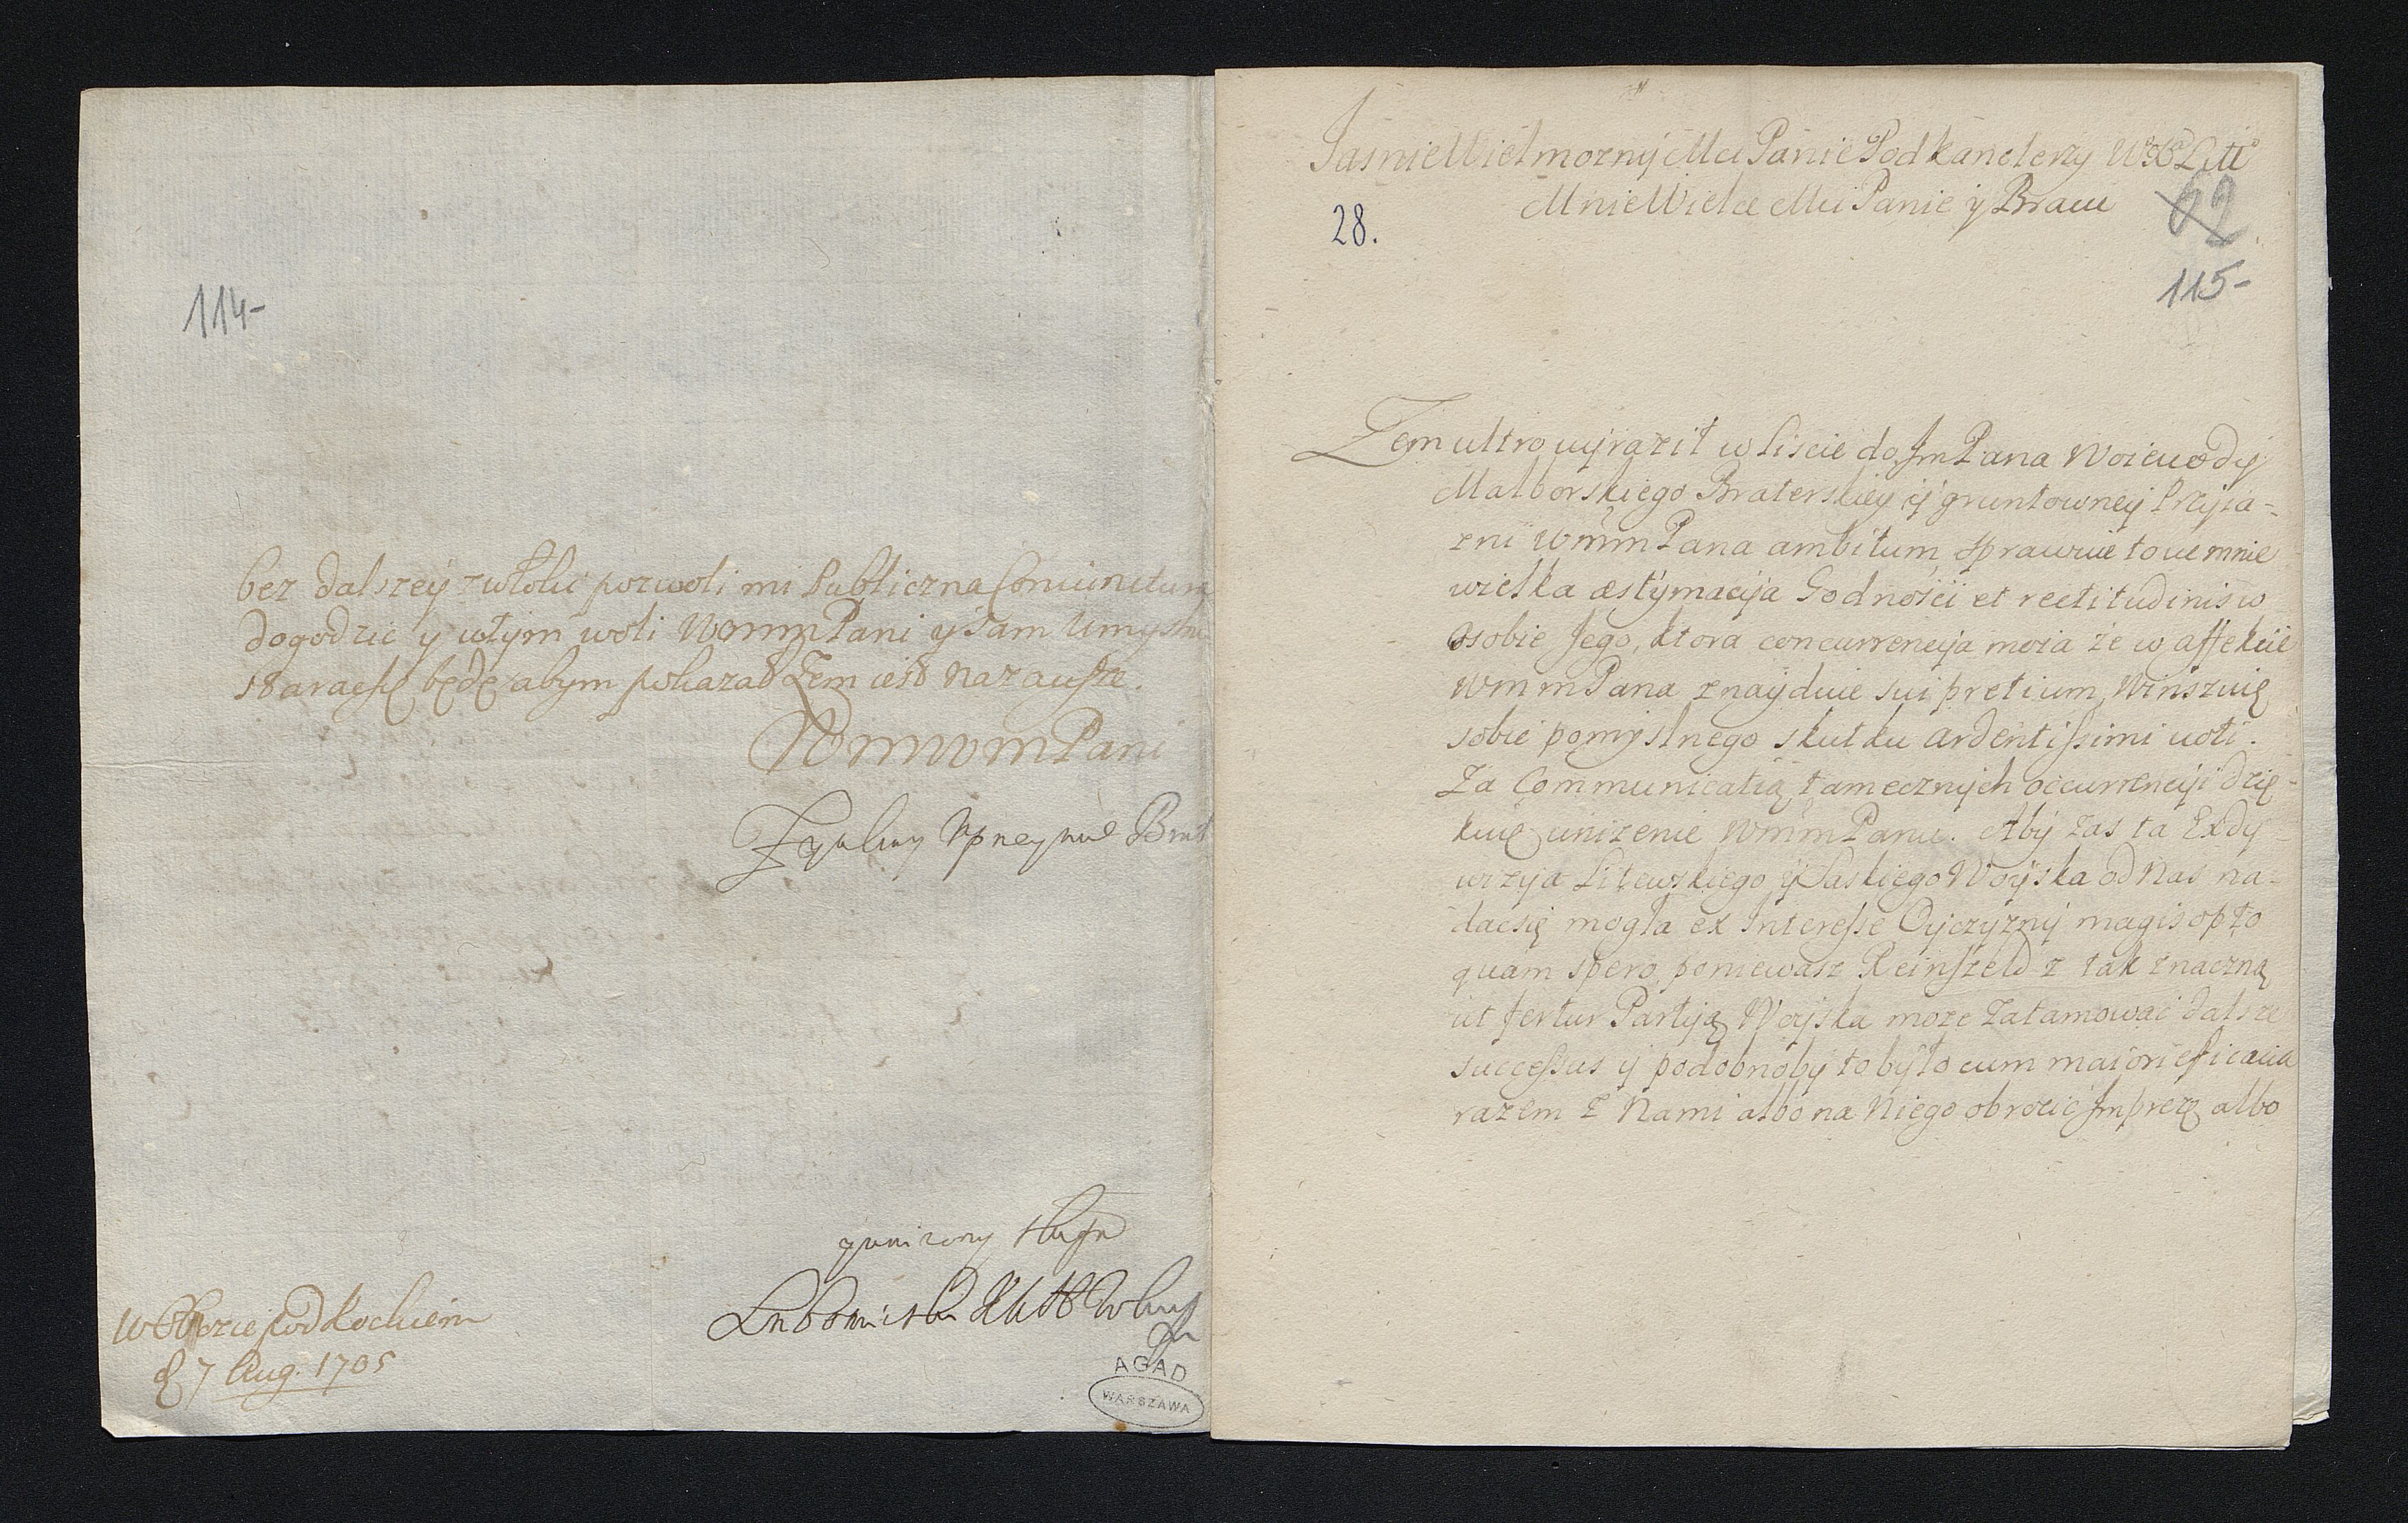 114-
bez dalszey zwłoki pozwoli mi Publiczna Coniunctura
dogodzic y wtym woli WmmPani y sam Umyslnie
staracsię będę abym pokazał Zem iest nazawsze.
WmmPani
Zyczliwy Uprzeymie Brat
y unizony sługa
Lubomirski
W Obozie pod Kockiem
d 7 Aug. 1705
AGAD
WARSZAWA
JasnieWielmozny Mci Panie Podkanclerzy WXLitt
MnieWielce Mci Panie y Bracie
62
28.
115-
Zem ultro wyraził w Liscie do JmPana Woiewody
Malborskiego Braterskiey y gruntowney Przyia-
zni WmmPana ambitum, sprawuie to we mnie
wielka æstymacyja Godności et rectitudinis w
osobie Jego, ktora concurrencyja moia że w affekcie
WmmPana znayduie sui pretium, Winszuię
sobie pomyslnego skutku ardentissimi voti.
Za Communicatią tamecznych occurrencyi dzię-
kuię uniżenie WmmPanu. Aby zas ta Exdy-
wizyja Litewskiego y Saskiego Woyska od Nas na-
dac się mogła ex Interesse Oyczyzny magis opto
quam spero, poniewasz Reinszeld z tak znaczną
ut fertur Partyją Woyska moze zatamowac dalsze
successus y podobnoby to było cum maiori eficacia
razem z Nami albo na Niego obrocic Jmprezę albo